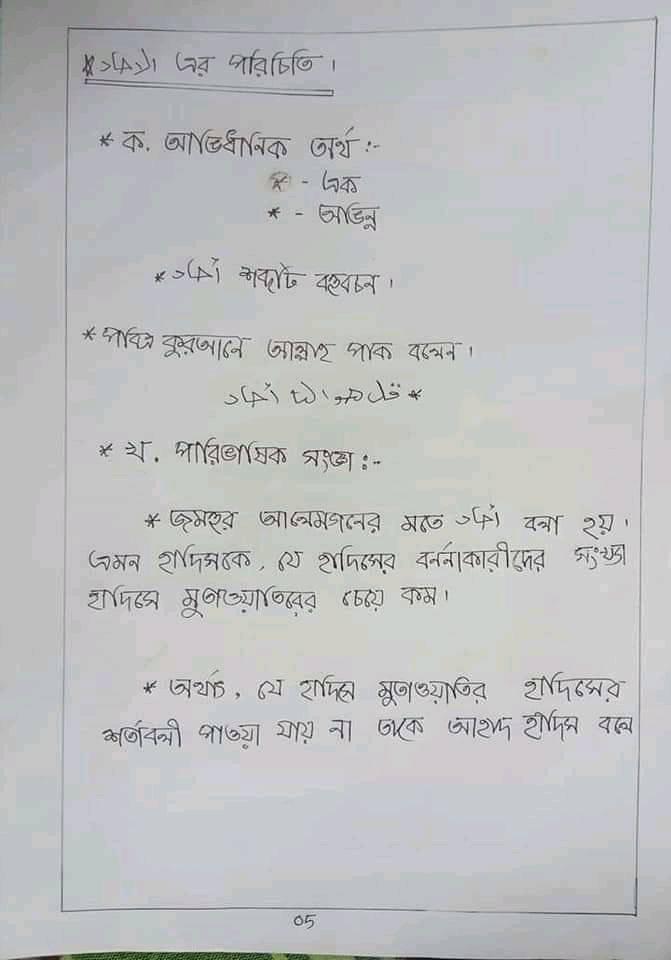 * الاحاد এর পরিচিতি।
* ক. আভিধানিক অর্থ :-
* - এক
* - অভিন্ন
* احاد শব্দটি বহুবচন।
* পবিত্র কুরআনে আল্লাহ পাক বলেন।
* قل هو الله احد
* খ. পারিভাষিক সংজ্ঞা :-
* জমহুর আলেমগনের মতে احاد বলা হয়।
এমন হাদিসকে, যে হাদিসের বর্ননাকারীদের সংখ্যা
হাদিসে মুতাওয়াতিরের চেয়ে কম।
* অর্থাৎ, যে হাদিসে মুতাওয়াতির হাদিসের
শর্তাবলী পাওয়া যায় না তাকে আহাদ হাদিস বলে
05